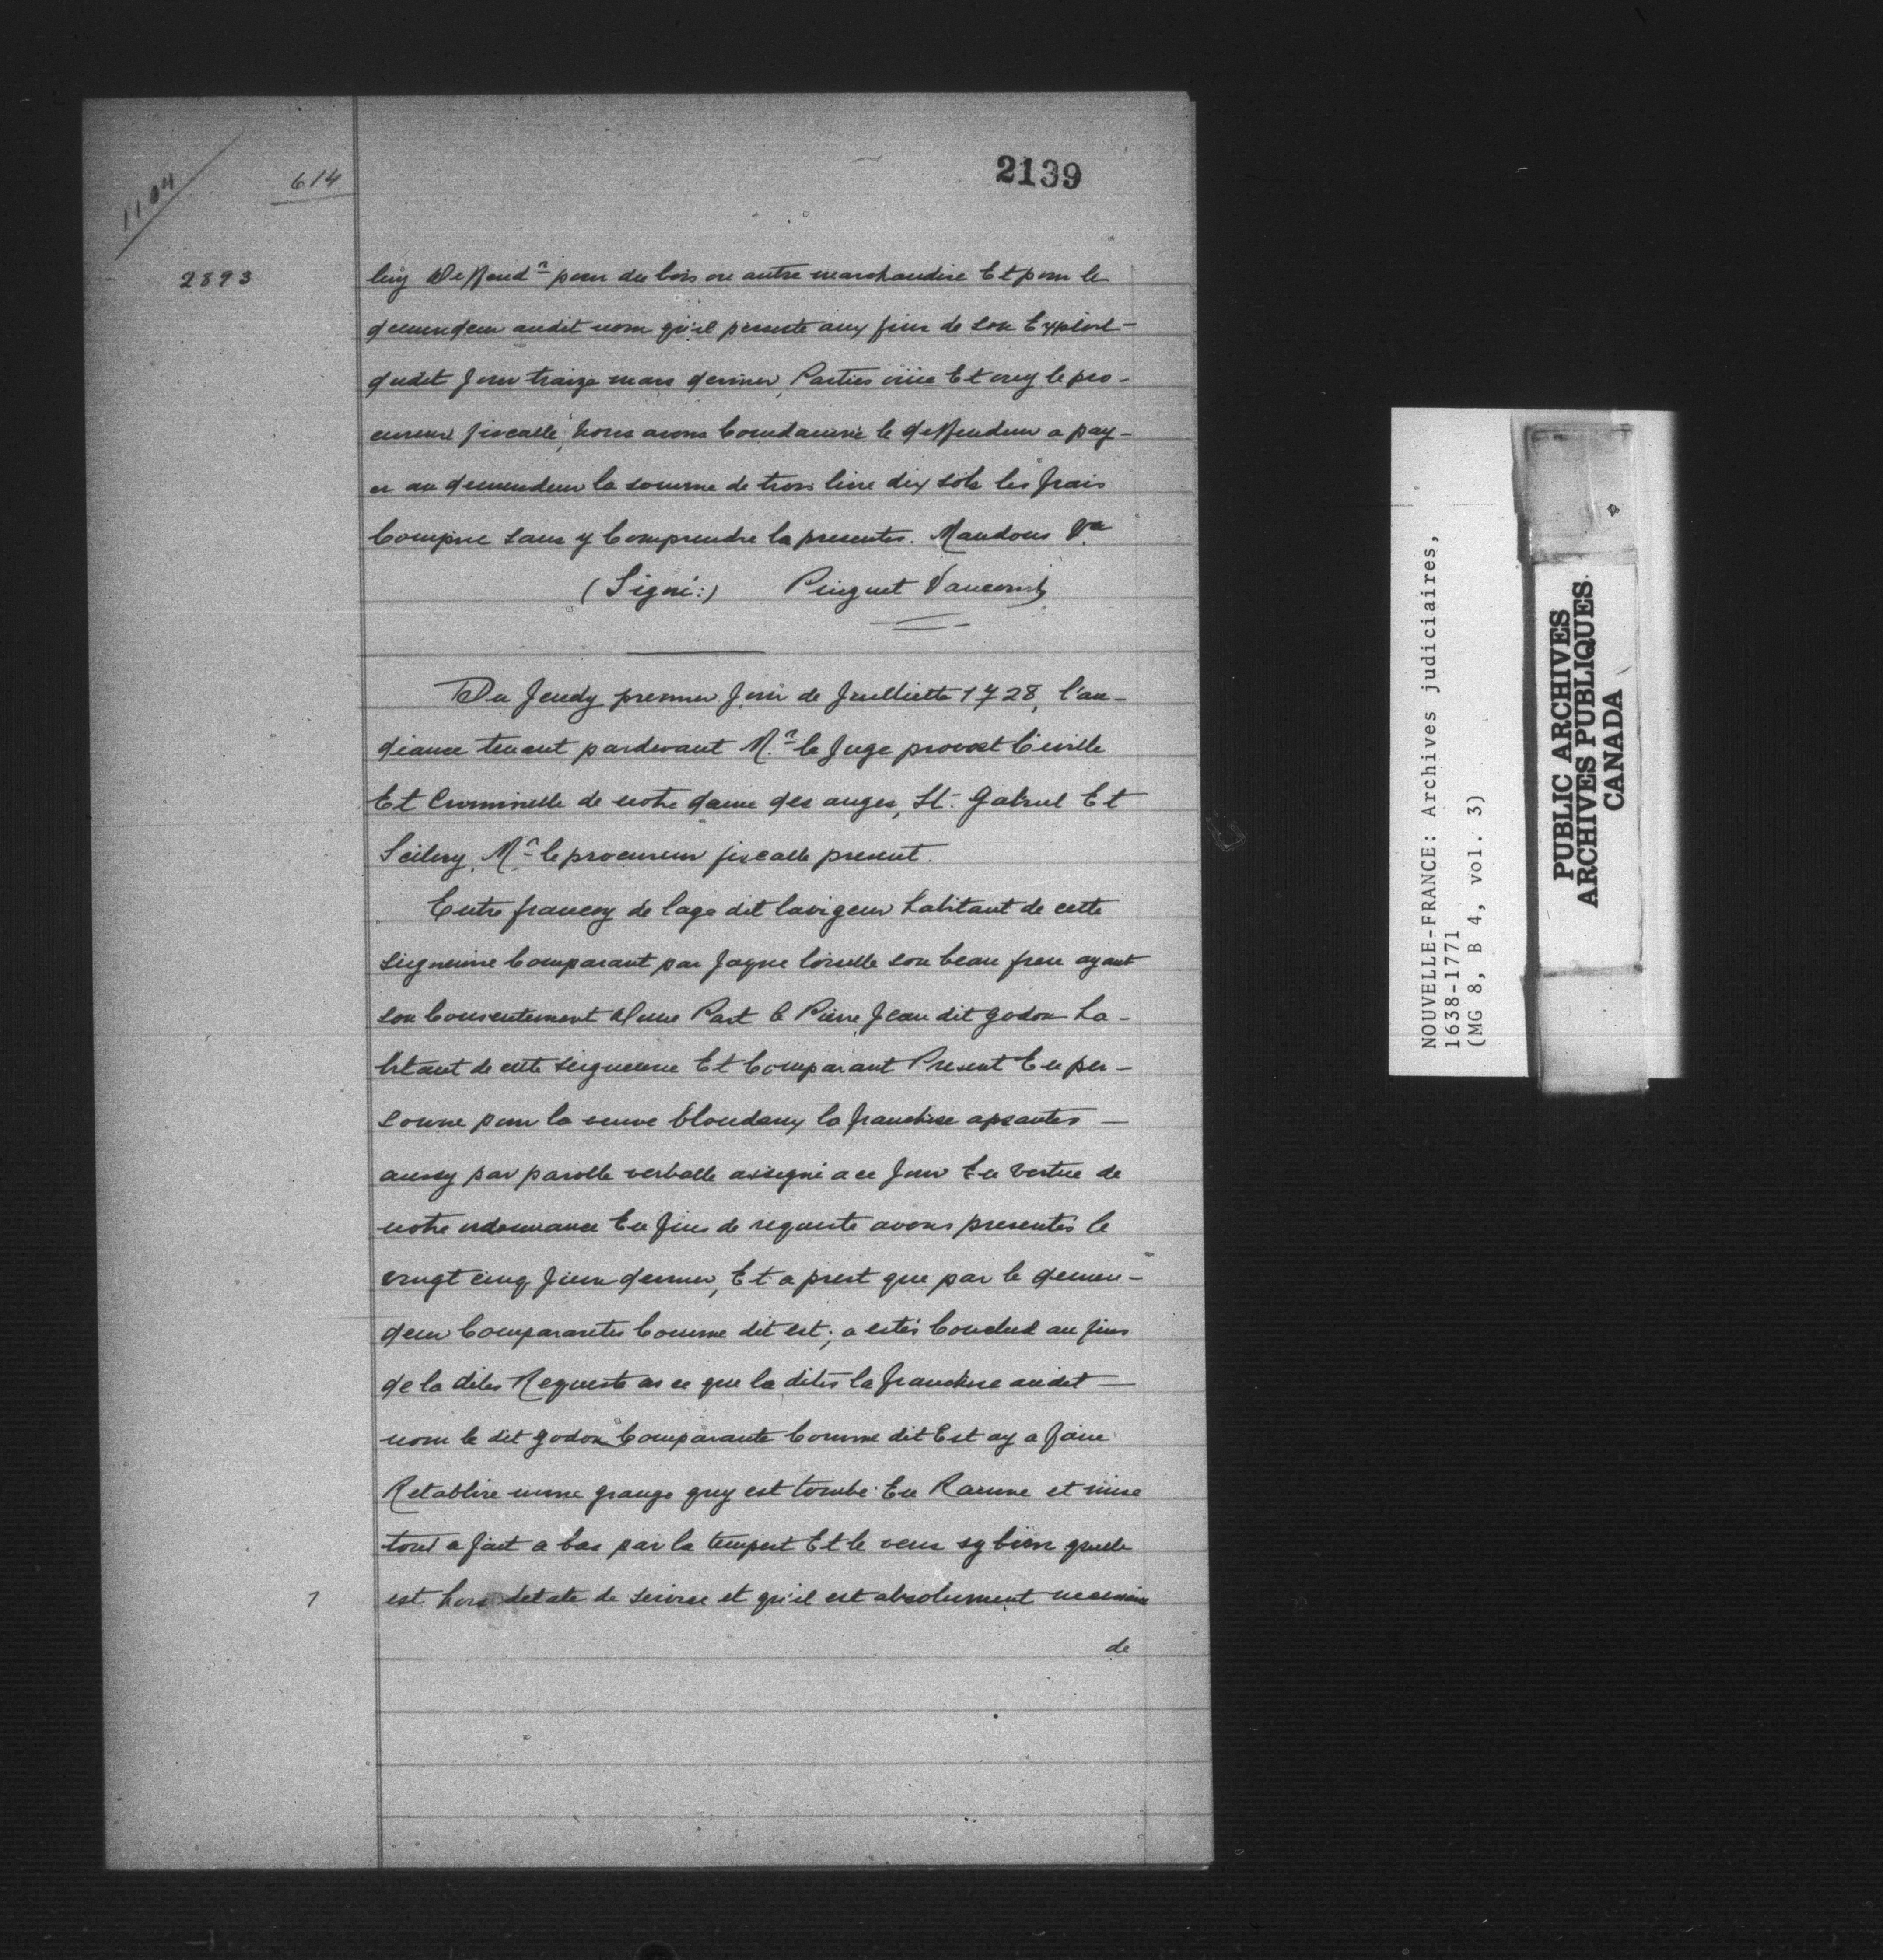 1104
614
2139
2893
luy Deffendr pour du bois ou autre marchandise Et pour le
demendeur audit nom qu'il persiste aux fins de son Exploit-
dudit Jour traize mars dernier, Parties ouïe Et ouy le pro-
cureur fiscalle, Nous avons Condamné le deffendeur a pay-
er au demendeur la somme de trois livre dix sols les frais
Compris sans y Comprendre la presentes. Mandons &a
(Signé:) Pinguet Vaucourt
Du Jeudy premier Jour de Juilliette 1728, l'au-
diance tenent pardevant Mr le Juge provost Civille
Et Criminelle de notre dame des anges, St. Gabriel Et
Scilery, Mr le procureur fiscalle present.
Entre francoy de lage dit lavigeur habitant de cette
Seigneurie Comparant par Jaque loiselle son beau frere ayant
son Consentement d'une Part & Pierre Jean dit godon ha-
bitant de cette Seigneurie Et Comparant Present En per-
sonne pour la veuve blondeny la franchise apsantes —
aussy par parolle verballe assigné a ce Jour En vertue de
notre ordonnance En fins de requeste avons presentés le
vingt cinq Juin dernier, Et a prest que par le demen-
deur Comparantes Comme dit est; a estés Conclud au fins
de la dites Requeste as ce que la dites la franchise audit —
nom le dit godon Comparante Comme dit Est ay a faire
Retablire unne grange quy est tombé En Ruinne et mise
tout a fait a bas par la tempest Et le vens sy bien quelle
1 est hors detate de servise et qu'il est absolument necessaire
de
NOUVELLE-FRANCE: Archives judiciaires,
1638-1771
(MG 8, B 4, vol. 3)
PUBLIC ARCHIVES
ARCHIVES PUBLIQUES
CANADA